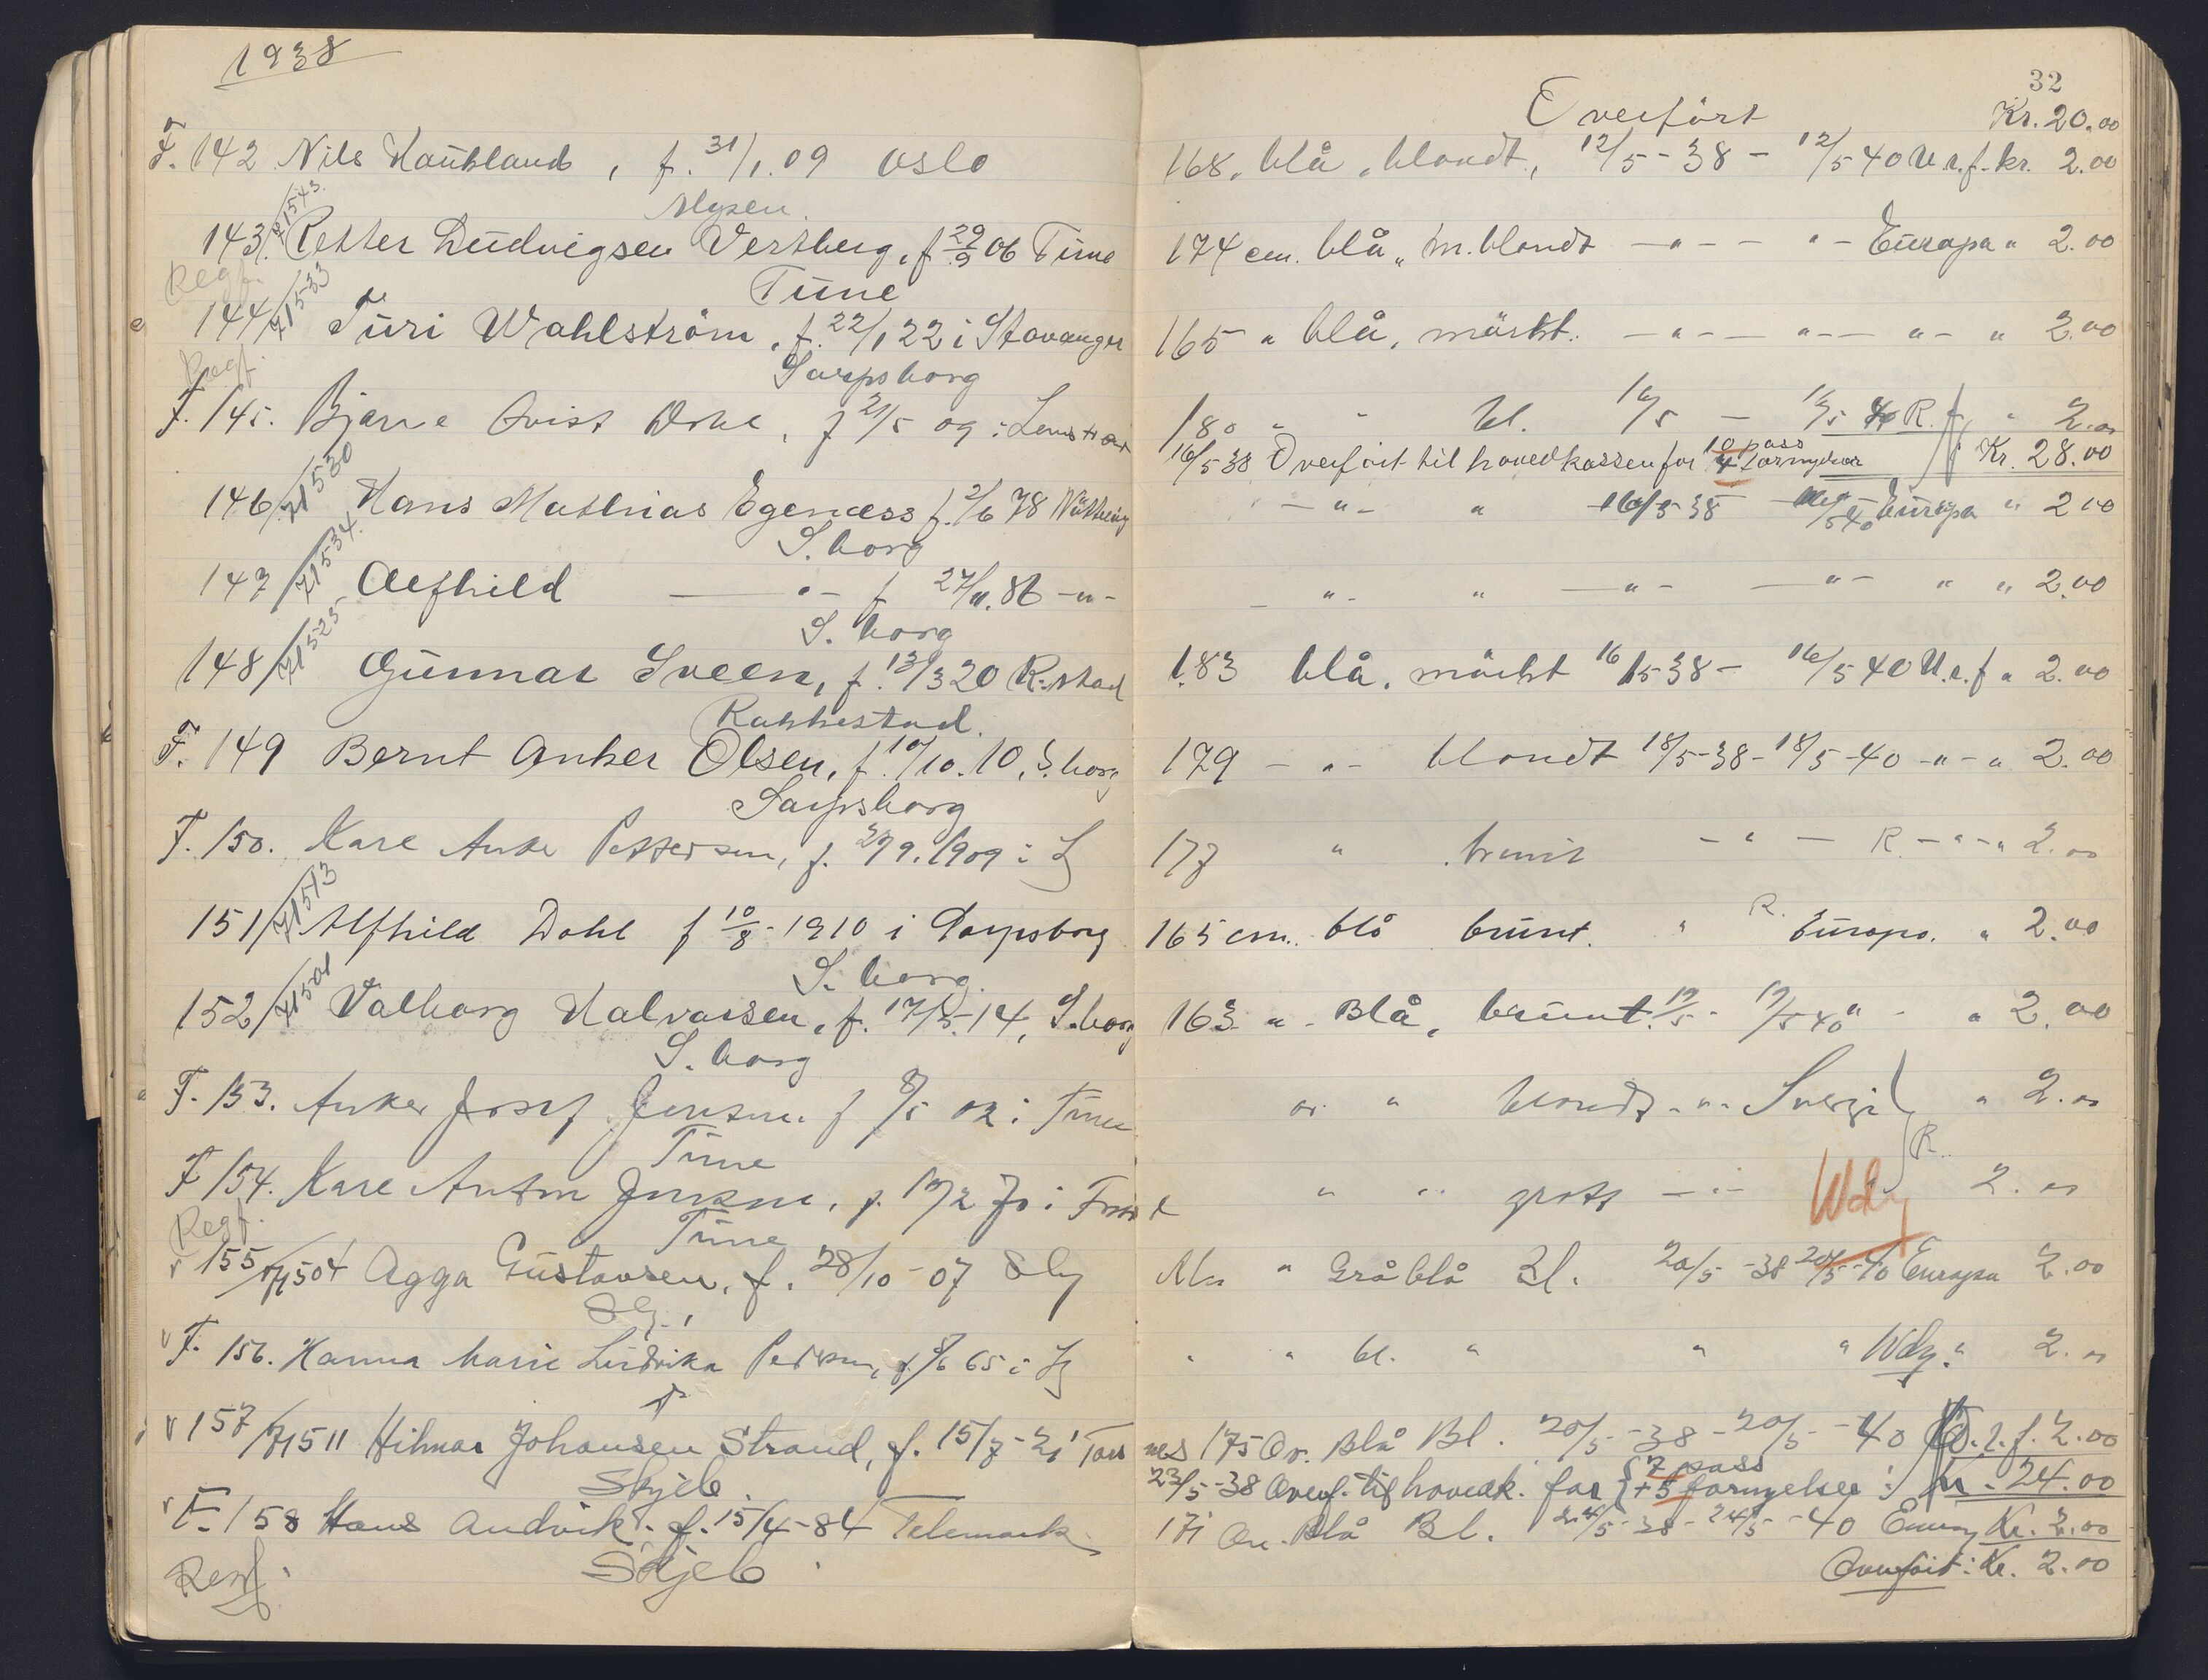 1938
32
Overfört Kr. 20.00
F. 142 Nils Haukland, f. 31/1.09 Oslo 168, blå, blondt, 12/5-38 - 12/5 40 U.r.f. kr. 2.00
Mysen.
143/71543. Petter Ludvigsen Vestberg, f 29/9 06 Tune 174 cm. blå „ m. blondt — " — — " — Europa " 2.00
Regf. Tune
144/71533 Turi Wahlström, f. 22/1 22 i Stavanger 165 " blå, mörkt. — " — — " — — " — " 2.00
Regf. Sarpsborg
F. 145. Bjarne Qvist f 21/5 09 i 180 " - bl. 16/5 — 16/5 40 R. f. " 2.00
16/5 38 Overfört til hovedkassen for 10 pass 4 fornyelser Kr. 28.00
146/71530 Hans Mathias Egenæss f. 2/6 78 - " - " 16/5-38 - 16/5 40 Europa " 2.00
S.borg
147/71534. Alfhild — " — f 27/11.86 - " - - " - " — " - — " - " " 2.00
S.borg
148/71525 Gunnar Sveen, f. 13/3 20 R.stad 183 blå, mörkt 16/5 38 - 16/5 40 U.r.f " 2.00
Rakkestad.
F. 149 Bernt Anker Olsen, f. 10/10.10, S.borg 179 - " - blondt 18/5-38 - 18/5-40 - " - " 2.00
Sarpsborg
F. 150. Kare Anker Pettersen, f. 29/9.1909 i 177 " brunt - " - R. - " - " 2.00
151/71513 Alfhild Dahl f 10/8-1910 i Sarpsborg 165 cm. blå brunt. " R. Europa. " 2.00
S.borg.
152/71501 Valborg Halvorsen, f. 17/5-14, S.borg 163 " - Blå, brunt. 19/5 - 19/5 40 " - " 2.00
S.borg
F. 153. Anker Josef Jensen f 8/5 02 i Tune or. " blondt - " - Sverige " 2.00
Tune R.
F 154. Kare Anton Jensen, f. i " " - " - Wdy 2.00
Regf. Tune
155/71504 Agga Gustavsen, f. 28/10-07 Sbg Alm " Gråblå Bl. 20/5-38 20/5-40 Europa 2.00
Sbg.
F. 156. Hanna Marie Ludvika f. 65 i " " bl. " " " Wdy. " 2.00
157/71511 Hilmar Johansen Strand, f. 15/7-21 Torsnes 175 Ov. Blå Bl. 20/5-38 - 20/5-40 U.r.f. 2.00
Skjeb. 23/5-38 Overf. til hovedk. for 7 pass + 5 fornyelser: Kr. 24.00
F. 158 Hans Andvik. f. 15/4-84 Telemark 171 Ov. Blå Bl. 24/5-38 - 24/5-40 Europ Kr. 2.00
Regf. Skjeb. Overfört: Kr. 2.00